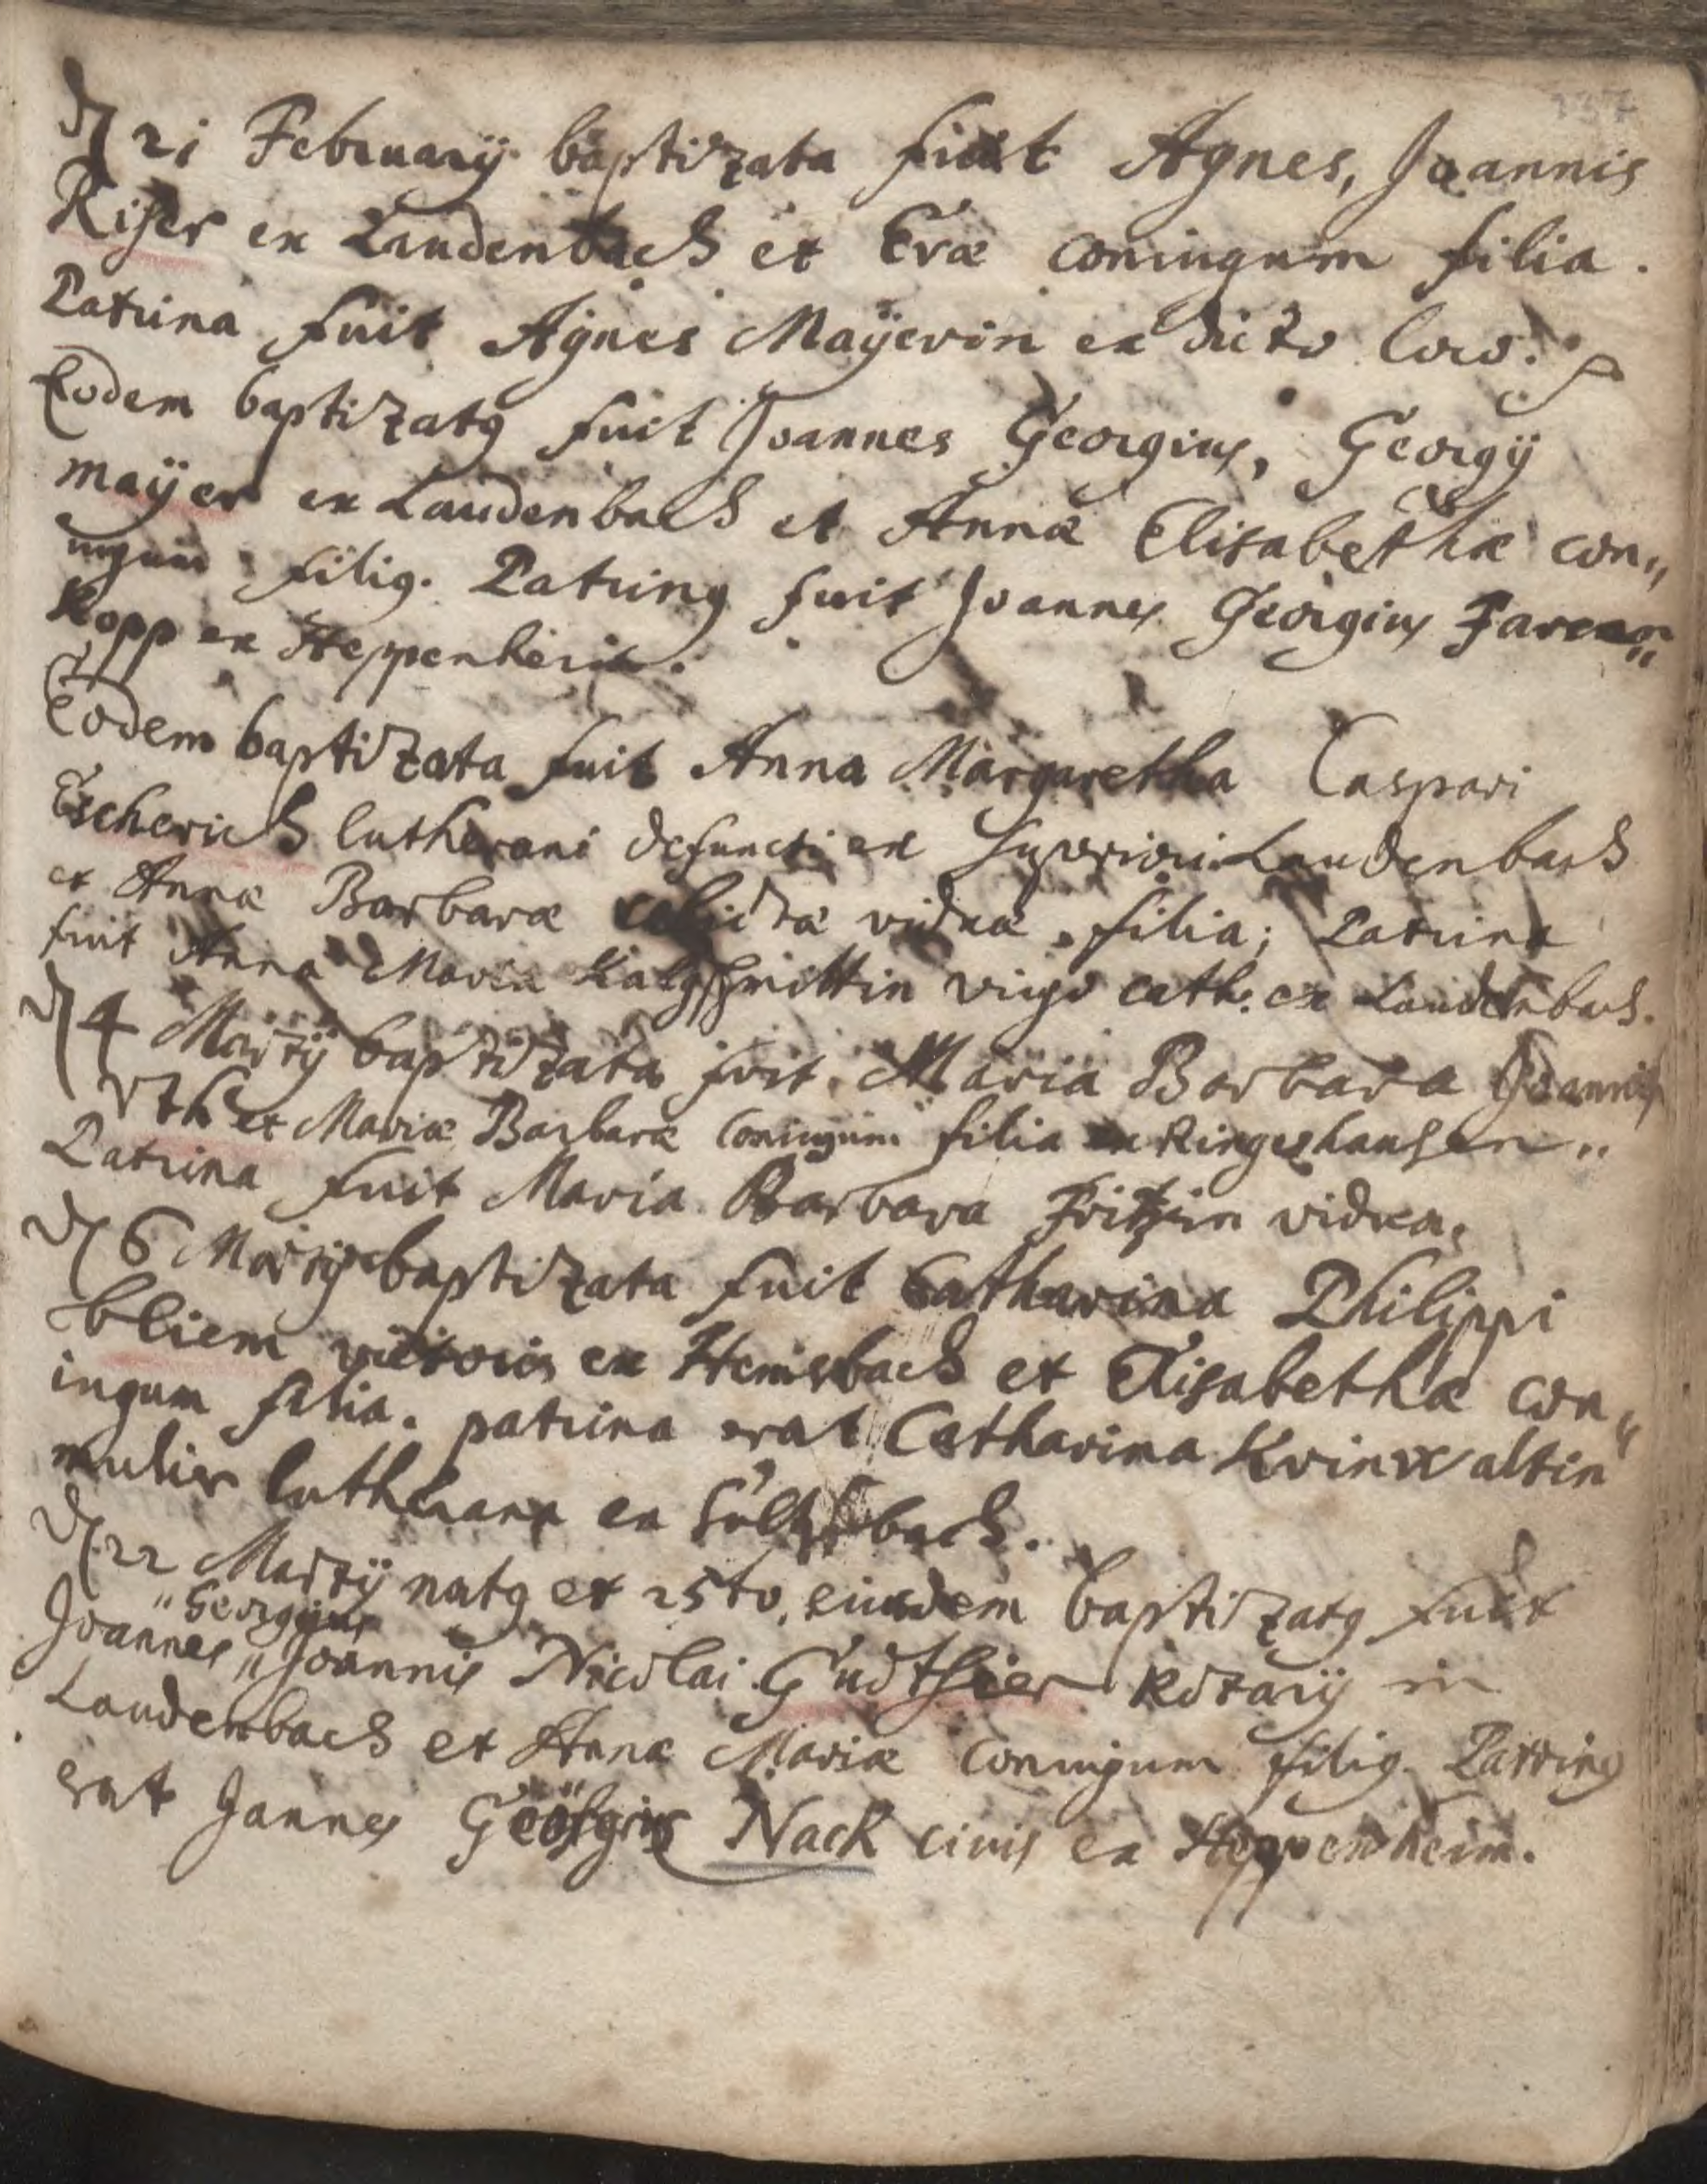 d 21 February baptizata fuit Agnes, Joannis
Riser ex Laudenbach et Evæ coniugum filia.
Patrina fuit Agnes Maÿerin ex dicto loco.
Eodem baptizatq fuit Joannes Georgius, Georgÿ
maÿer ex Laudenbach et Annæ Elisabethæ con„
iugum filiq. Patrinq fuit Joannes Georgius Faren„
Kopp ex Heppenheim.
Eodem baptizata fuit Anna Margaretha Caspari
Escherich lutherani defuncti ex superiori Laudenbach
et Annæ Barbaræ relictæ viduæ filia; Patrina
fuit Anna Maria Kalgschmittin virgo cath. ex Laudenbach.
d 4 Martÿ baptizata fuit Maria Barbara Joannis
Vth et Mariæ Barbaræ coniugum filia ex Ringeshausen„
Patrina fuit Maria Barbara Fritzin vidua.
d 6 Martÿ baptizata fuit Catharina Philippi
bliem vietoris ex Hemsbach et Elisabethæ con„
iugum filia. patrina erat Catharina Krinwaltin
mulier lutherana ex Sultzbach.
d 22 Martÿ natq et 25to eiusdem baptizatq fuit
„Georgius
Joannes „ Joannis Nicolai Gudthier Notarÿ in
Laudenbach et Annæ Mariæ coniugum filiq. Patrinq
erat Jannes Georgius Nack civis ex Heppenheim.